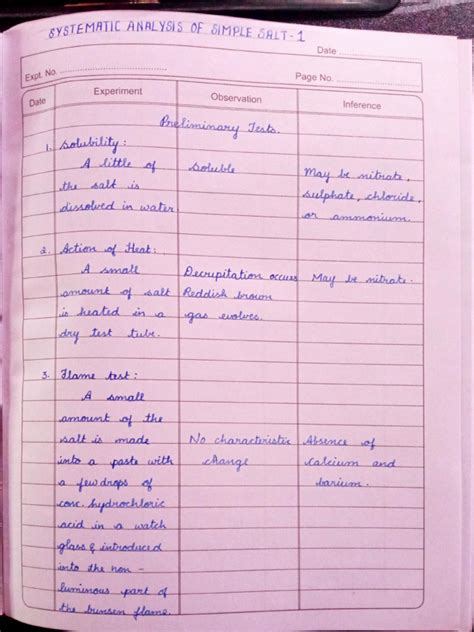 SYSTEMATIC ANALYSIS OF SIMPLE SALT-1
Date
Expt. No.
Page No.
Date Experiment Observation Inference
Preliminary Tests.
1. Solubility:
A little of soluble May be nitrate,
the salt is sulphate, chloride,
dissolved in water. or ammonium.
2. Action of Heat:
A small Decrupitation occurs May be nitrate.
amount of salt Reddish brown
is heated in a gas evolves.
dry test tube.
3. Flame test:
A small
amount of the
salt is made No characteristic Absence of
into a paste with change calcium and
a few drops of barium.
conc. hydrochloric
acid in a watch
glass & introduced
into the non -
luminous part of
the bunsen flame.